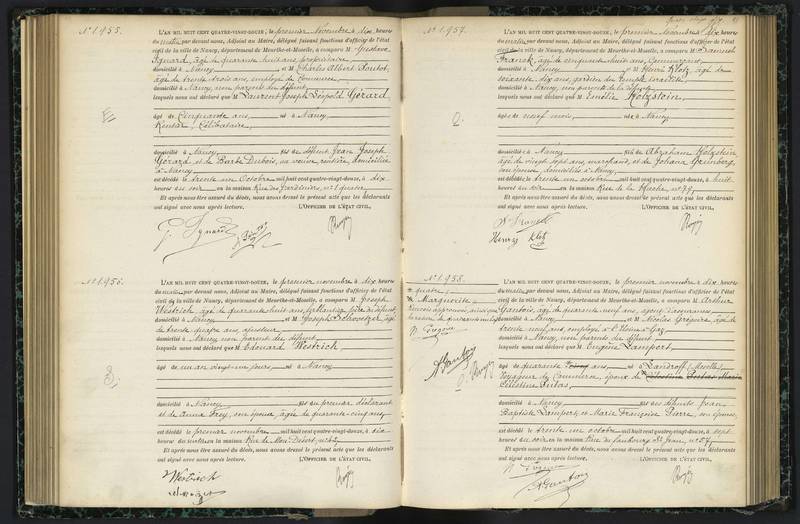 N° 1955.
L'AN MIL HUIT CENT QUATRE-VINGT-DOUZE, le premier Novembre à dix heures
du matin par devant nous, Adjoint au Maire, délégué faisant fonctions d'officier de l'état
civil de la ville de Nancy, département de Meurthe-et-Moselle, a comparu M. Gustave
Ignard, âgé de quarante huit ans, propriétaire
domicilié à Nancy et M Charles Albert
âgé de trente trois ans, employé de Commerce
domicilié à Nancy, non parents du défunt
lesquels nous ont déclaré que M Laurent Joseph Léopold Gérard
âgé de Cinquante ans né à Nancy
Rentier, Célibataire
domicilié à Nancy fils de défunt Jean Joseph
Gérard et de Barbe Dubois, sa veuve, rentière, domiciliée
à Nancy
est décédé le trente un Octobre mil huit cent quatre-vingt-douze, à dix
heures du soir en la maison Rue des Jardiniers, n° 1 quater
Et après nous être assuré du décès, nous avons dressé le présent acte que les déclarants
ont signé avec nous après lecture. L'OFFICIER DE L'ÉTAT CIVIL,
G Ignard
N° 1956.
L'AN MIL HUIT CENT QUATRE-VINGT-DOUZE, le premier novembre à dix heures
du matin par devant nous, Adjoint au Maire, délégué faisant fonctions d'officier de l'état
civil de la ville de Nancy, département de Meurthe-et-Moselle, a comparu M. Joseph
Westrich, âgé de quarante huit ans, père du défunt,
domicilié à Nancy et M Joseph
de trente quatre ans, ajusteur
domicilié à Nancy, non parent du défunt
lesquels nous ont déclaré que M Edouard Westrich
âgé de un an vingt-un jours né à Nancy
domicilié à Nancy fils du premier déclarant
et de Anna Frey, son épouse, âgée de quarante-cinq ans
est décédé le premier novembre mil huit cent quatre-vingt-douze, à dix
heures du matin en la maison Rue de Mon Désert, n°
Et après nous être assuré du décès, nous avons dressé le présent acte que les déclarants
ont signé avec nous après lecture. L'OFFICIER DE L'ÉTAT CIVIL,
Westrich
N° 1957.
L'AN MIL HUIT CENT QUATRE-VINGT-DOUZE, le premier Novembre à dix heures
du matin par devant nous, Adjoint au Maire, délégué faisant fonctions d'officier de l'état
civil de la ville de Nancy, département de Meurthe-et-Moselle, a comparu M.
Franck, âgé de cinquante huit ans, Commerçant
domicilié à Nancy et M Henri Klotz, âgé de
soixante dix ans, gardien du temple israélite
domicilié à Nancy, non parents de la défunte
lesquels nous ont déclaré que M Emélie Holzstein
âgée de neuf mois, née à Nancy
domiciliée à Nancy fille de Abraham Holzstein
âgé de vingt sept ans, marchand, et de Johana Grumberg,
son épouse, domiciliés à Nancy
est décédée le trente un octobre mil huit cent quatre-vingt-douze, à huit
heures du soir en la maison Rue de la Hache n° 79,
Et après nous être assuré du décès, nous avons dressé le présent acte que les déclarants
ont signé avec nous après lecture. L'OFFICIER DE L'ÉTAT CIVIL,
Franck
Henry Klotz
N° 1958.
quatre
Marguerite
L'AN MIL HUIT CENT QUATRE-VINGT-DOUZE, le premier novembre à dix heures
du matin par devant nous, Adjoint au Maire, délégué faisant fonctions d'officier de l'état
civil de la ville de Nancy, département de Meurthe-et-Moselle, a comparu M. Arthur
Gantois, âgé de quarante neuf ans, agent d'assurances
domicilié à Nancy et M Nicolas Grégoire, âgé de
trente neuf ans, employé à l'Usine à Gaz
domicilié à Nancy, non parents du défunt
lesquels nous ont déclaré que M Eugène Lampert
âgé de quarante ans né à Landroff (Moselle)
Voyageur de Commerce, époux de
Célestine
domicilié à Nancy fils de défunts Jean
Baptiste Lampert, et Marie Françoise Pierre, son épouse,
est décédé le trente un octobre mil huit cent quatre-vingt-douze, à sept
heures du soir en la maison Rue du faubourg St Jean, n° 57,
Et après nous être assuré du décès, nous avons dressé le présent acte que les déclarants
ont signé avec nous après lecture. L'OFFICIER DE L'ÉTAT CIVIL,